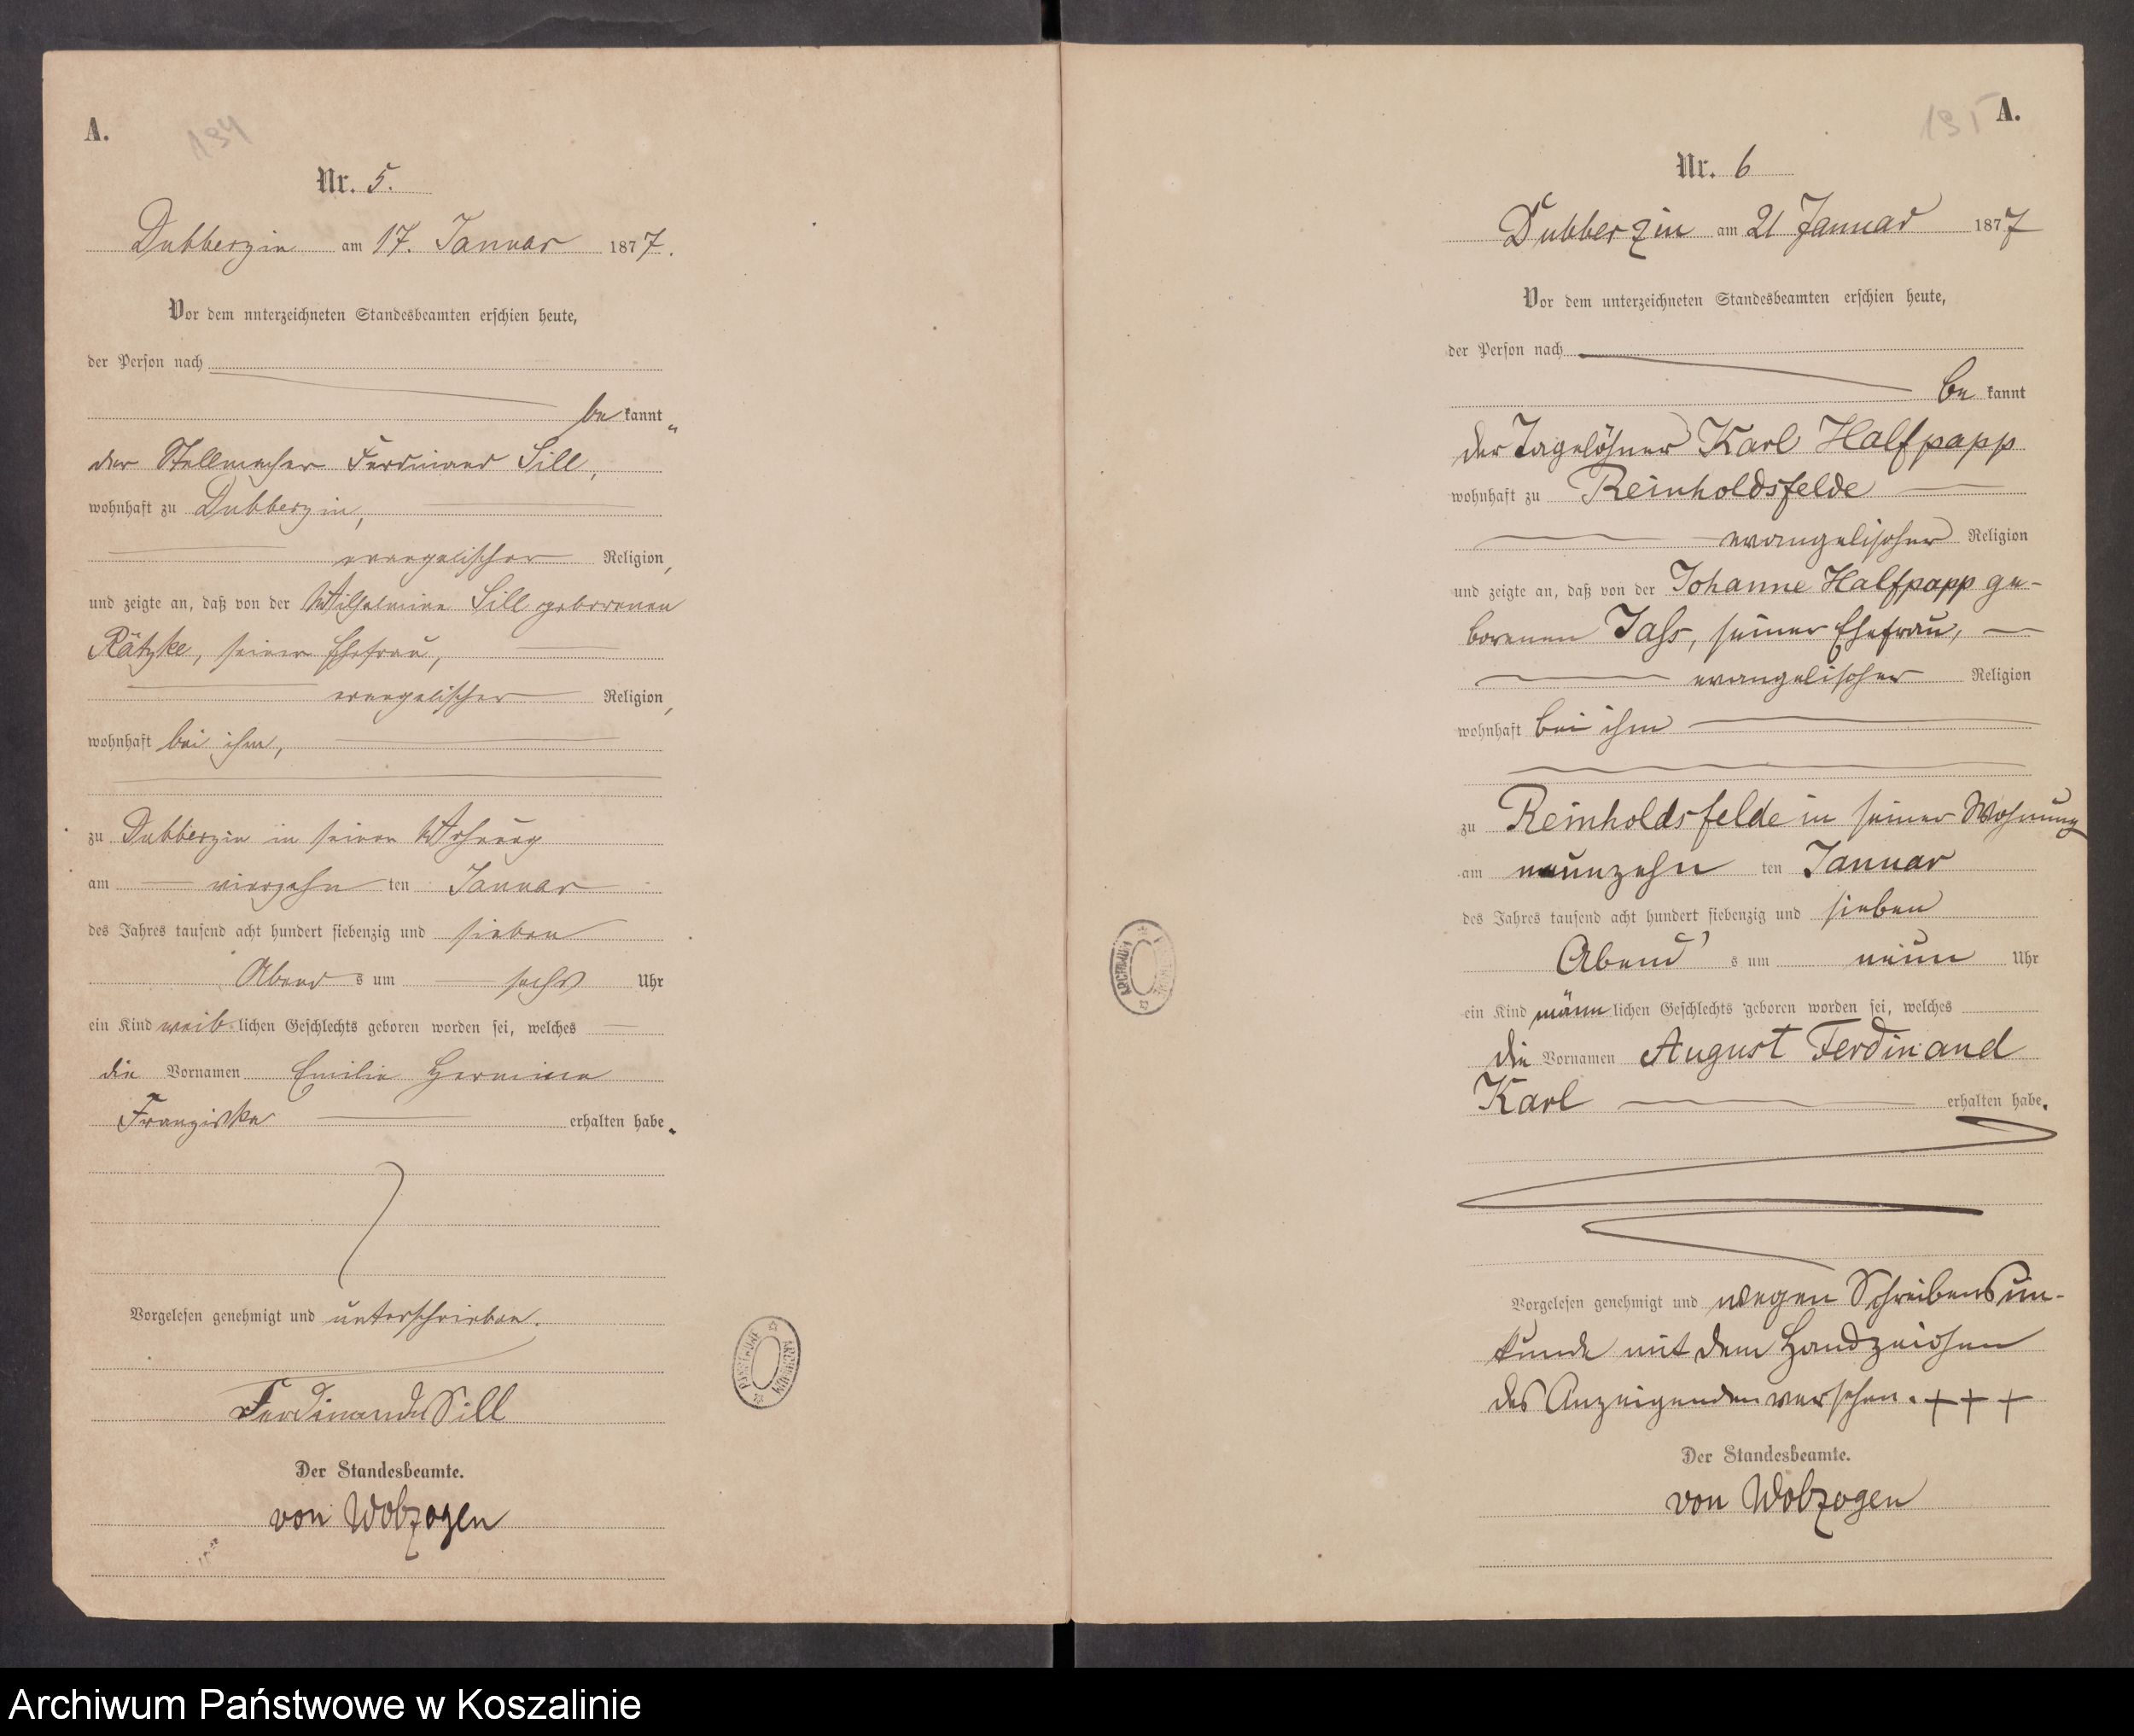 A.
194
Nr. 5.
Dubberzin am 17. Januar 1877.
Vor dem unterzeichneten Standesbeamten erschien heute,
der Person nach
be kannt,
der Stellmacher Ferdinand Sill,
wohnhaft zu Dubberzin,
evangelischer Religion,
und zeigte an, daß von der Wilhelmine Sill geborenen
Rätzke, seiner Ehefrau,
evangelischer Religion,
wohnhaft bei ihm,
zu Dubberzin in seiner Wohnung
am vierzehn ten Januar
des Jahres tausend acht hundert siebenzig und sieben
Abend s um sechs Uhr
ein Kind weib lichen Geschlechts geboren worden sei, welches
die Vornamen Emilie Hermine
Franziska erhalten habe.
Vorgelesen genehmigt und unterschrieben.
Ferdinand Sill
Der Standesbeamte.
von Wobzogen
A.
195
Nr. 6
Dubberzin am 21 Januar 1877
Vor dem unterzeichneten Standesbeamten erschien heute,
der Person nach
be kannt
der Tagelöhner Karl Halfpapp
wohnhaft zu Reinholdsfelde
evangelischer Religion
und zeigte an, daß von der Johanne Halfpapp ge-
borenen Jahs, seiner Ehefrau,
evangelischer Religion
wohnhaft bei ihm
zu Reinholdsfelde in seiner Wohnung
am neunzehn ten Januar
des Jahres tausend acht hundert siebenzig und sieben
Abend s um neun Uhr
ein Kind männ lichen Geschlechts geboren worden sei, welches
die Vornamen August Ferdinand
Karl erhalten habe.
Vorgelesen genehmigt und wegen Schreibensun-
kunde mit dem Handzeichen
des Anzeigenden versehen. + + +
Der Standesbeamte.
von Wobzogen
ARCHIWUM
Archiwum Państwowe w Koszalinie